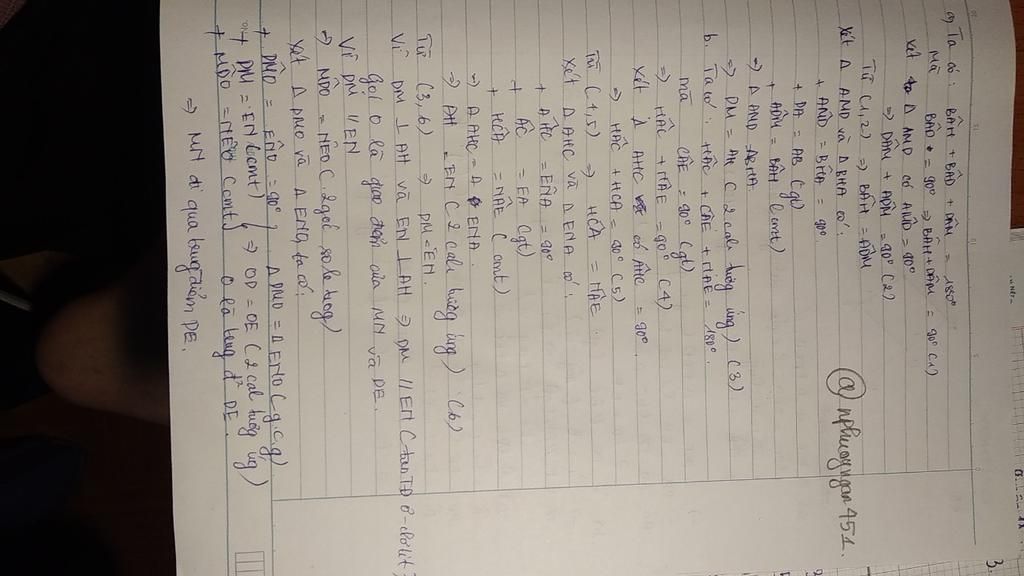 a) Ta có: BÂH + BÂD + DÂM = 180°
mà BÂD = 90° ⇒ BÂH + DÂM = 90° (1)
Xét Δ AMD có AM̂D = 90°
⇒ DÂM + AD̂M = 90° (2)
Từ (1,2) ⇒ BÂH = AD̂M
Xét Δ AMD và Δ BHA có:
+ AM̂D = BĤA = 90°
+ DA = AB (gt)
+ AD̂M = BÂH (cmt)
⇒ Δ AMD = Δ BHA
⇒ DM = AH (2 cah tướg ứng) (3)
@nphuongngan451.
b. Ta có: HÂC + CÂE + NÂE = 180°
mà CÂE = 90° (gt)
⇒ HÂC + NÂE = 90° (4)
Xét Δ AHC có AĤC = 90°
⇒ HÂC + HĈA = 90° (5)
Từ (4,5) ⇒ HĈA = NÂE.
Xét Δ AHC và Δ ENA có:
+ AĤC = EN̂A = 90°
+ AC = EA (gt)
+ HĈA = NÂE (cmt)
⇒ Δ AHC = Δ ENA.
⇒ AH = EN (2 cah tướg ứng) (6)
Từ (3,6) ⇒ DM = EN.
Vì DM ⊥ AH và EN ⊥ AH ⇒ DM // EN (tan TĐ ơ-clolit)
gọi O là giao điểm của MN và DE.
Vì DM // EN
⇒ MD̂O = NÊO (2 góc so le trog)
Xét Δ DMO và Δ ENO, ta có:
+ DM̂O = EN̂O = 90°
+ DM = EN (cmt)
+ MD̂O = NÊO (cmt)
Δ DMO = Δ ENO (g c g)
⇒ OD = OE (2 cah tướg ứg)
O là trug đ² DE.
⇒ MN đi qua trung điểm DE.
3.